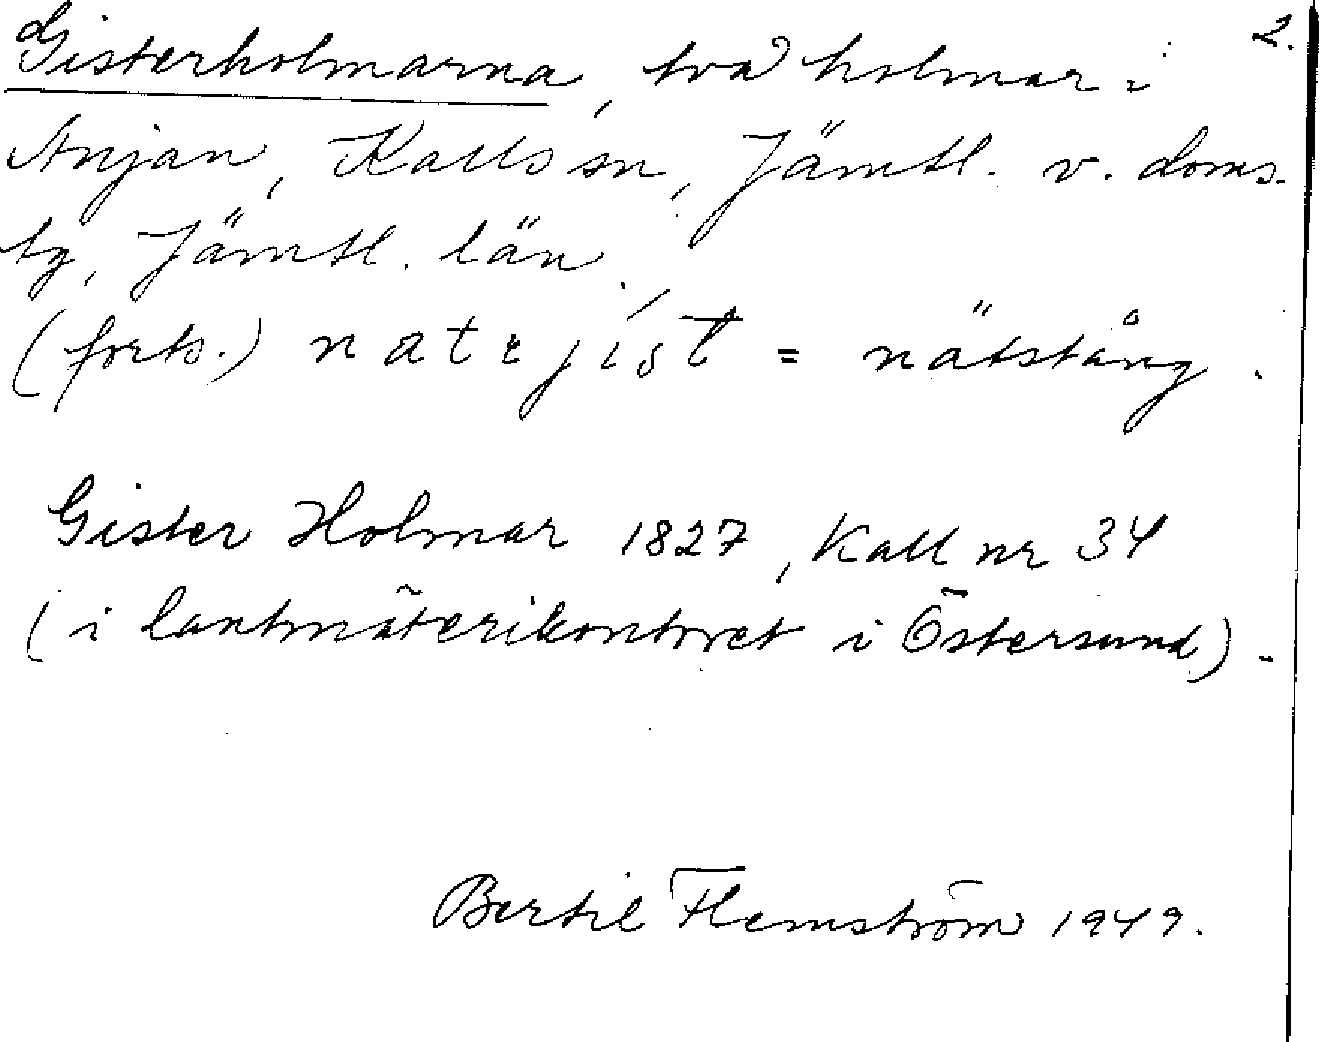 2.
Gisterholmarna, två holmar i
Anjan, Kalls sn, Jämtl. v. doms-
tg, Jämtl. län.
(forts.) natejist = nätstång.
Gister Holmar 1827, Kall nr 34
(i lantmäterikontoret i Östersund).
Bertil Flemström 1949.